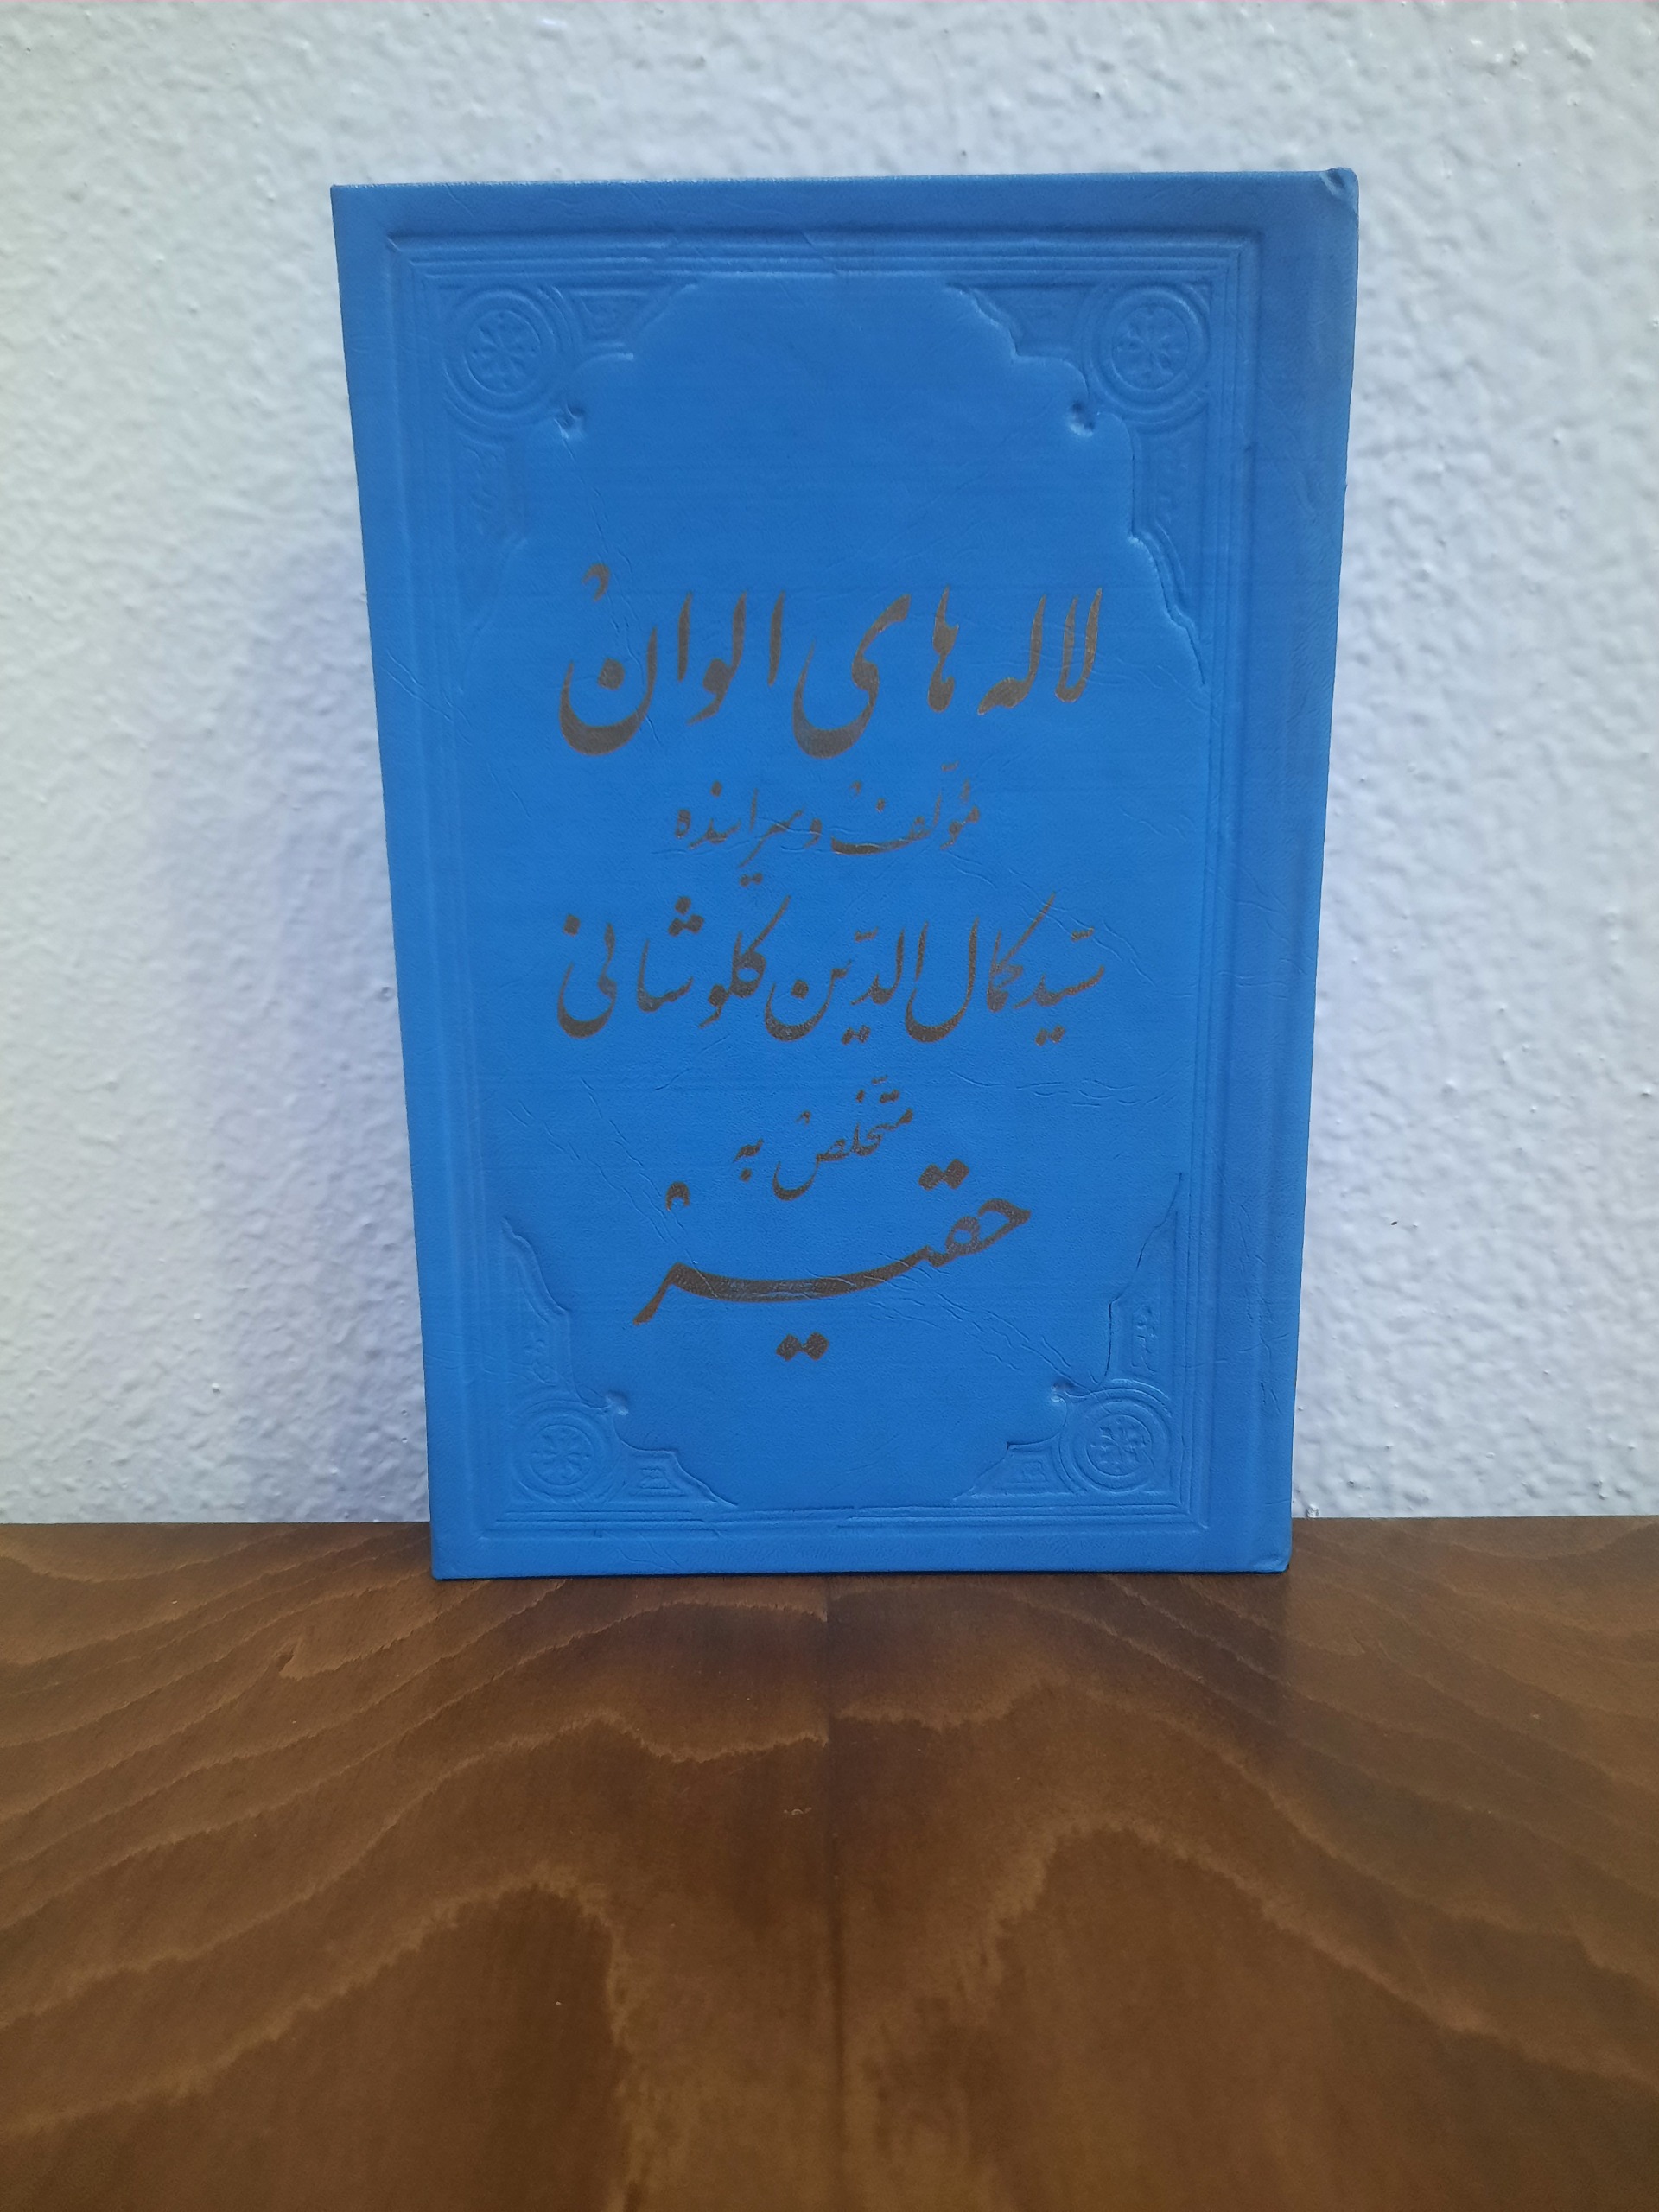 لاله های الوان
مؤلف و سراینده
سید کمال الدین کلوشانی
متخلص به
حقیر